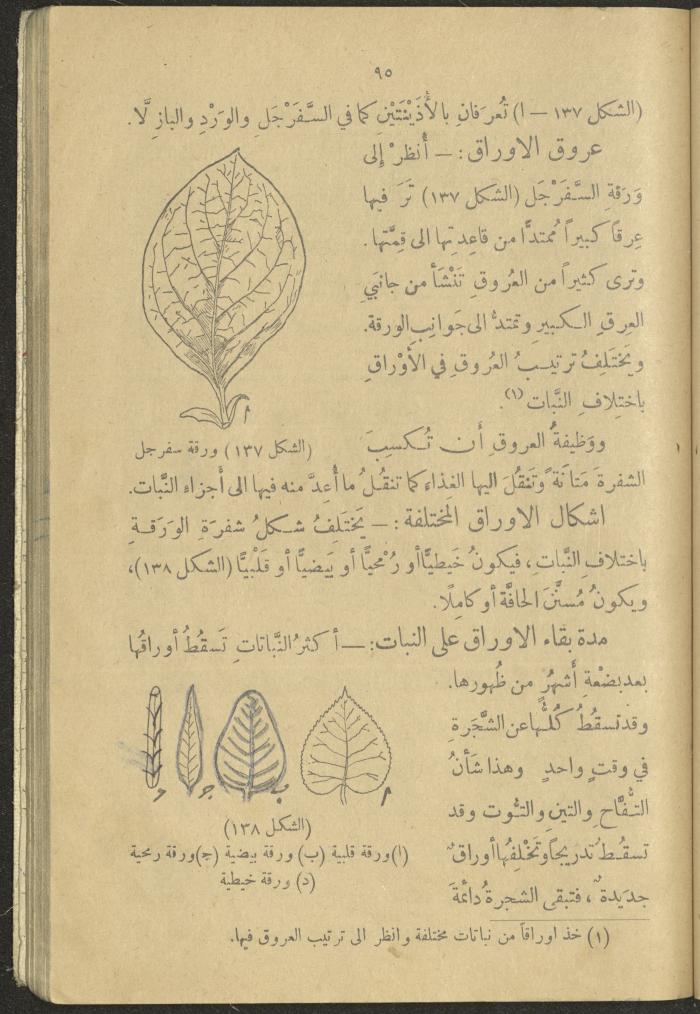 ٩٥
(الشكل ١٣٧ — ا) تُعرَفانِ بالأُذَيْنَتَيْنِ كما في السَّفَرْجَلِ والوَرْدِ والبازِلَّا.
عروق الاوراق : — أُنظرْ إلى
وَرَقةِ السَّفَرْجَل (الشكل ١٣٧) تَرَ فيها
عِرقاً كبيراً مُمتدًّا من قاعِدتِها الى قِمَّتها.
وترى كثيراً من العُروقِ تَنْشَأُ من جانبَيِ
العِرقِ الكبيرِ وتمتدُّ الى جَوانِبِ الورقة.
ويَختَلِفُ ترتيبُ العُروقِ في الأوْراقِ
باختِلافِ النَّبات (١).
ا
(الشكل ١٣٧) ورقة سفرجل
ووَظيفةُ العروقِ أَن تُكسِبَ
الشفرةَ مَتانَةً وتَنقُلَ اليها الغِذاء كما تنقُلُ ما أُعِدَّ منه فيها الى أَجزاء النَّبات.
اشكال الاوراق المختلفة : — يَختَلِفُ شكلُ شفرَةِ الوَرَقةِ
باختلافِ النَّباتِ، فيكونُ خَيطيًّا أو رُمْحيًّا أو بَيضيًّا أو قَلْبيًّا (الشكل ١٣٨)،
ويكونُ مُسنَّنَ الحافَّة أو كامِلًا.
مدة بقاء الاوراق على النبات : — أكثرُ النَّباتاتِ تَسقُطُ أوراقُها
بعد بضْعةِ أَشهُرٍ من ظُهورها.
وقد تسقُطُ كُلُّها عن الشَّجَرةِ
في وقتٍ واحدٍ وهذا شَأنُ
التُّفَّاحِ والتينِ والتُّوت وقد
تسقُطُ تدريجاً وتَخْلِفُها أوراقٌ
جديدةٌ، فتبقى الشجرةُ دائمةَ
ا
ب
ج
د
(الشكل ١٣٨)
(ا) ورقة قلبية (ب) ورقة بيضية (ج) ورقة رمحية
(د) ورقة خيطية
(١) خذ اوراقاً من نباتات مختلفة وانظر الى ترتيب العروق فيها.